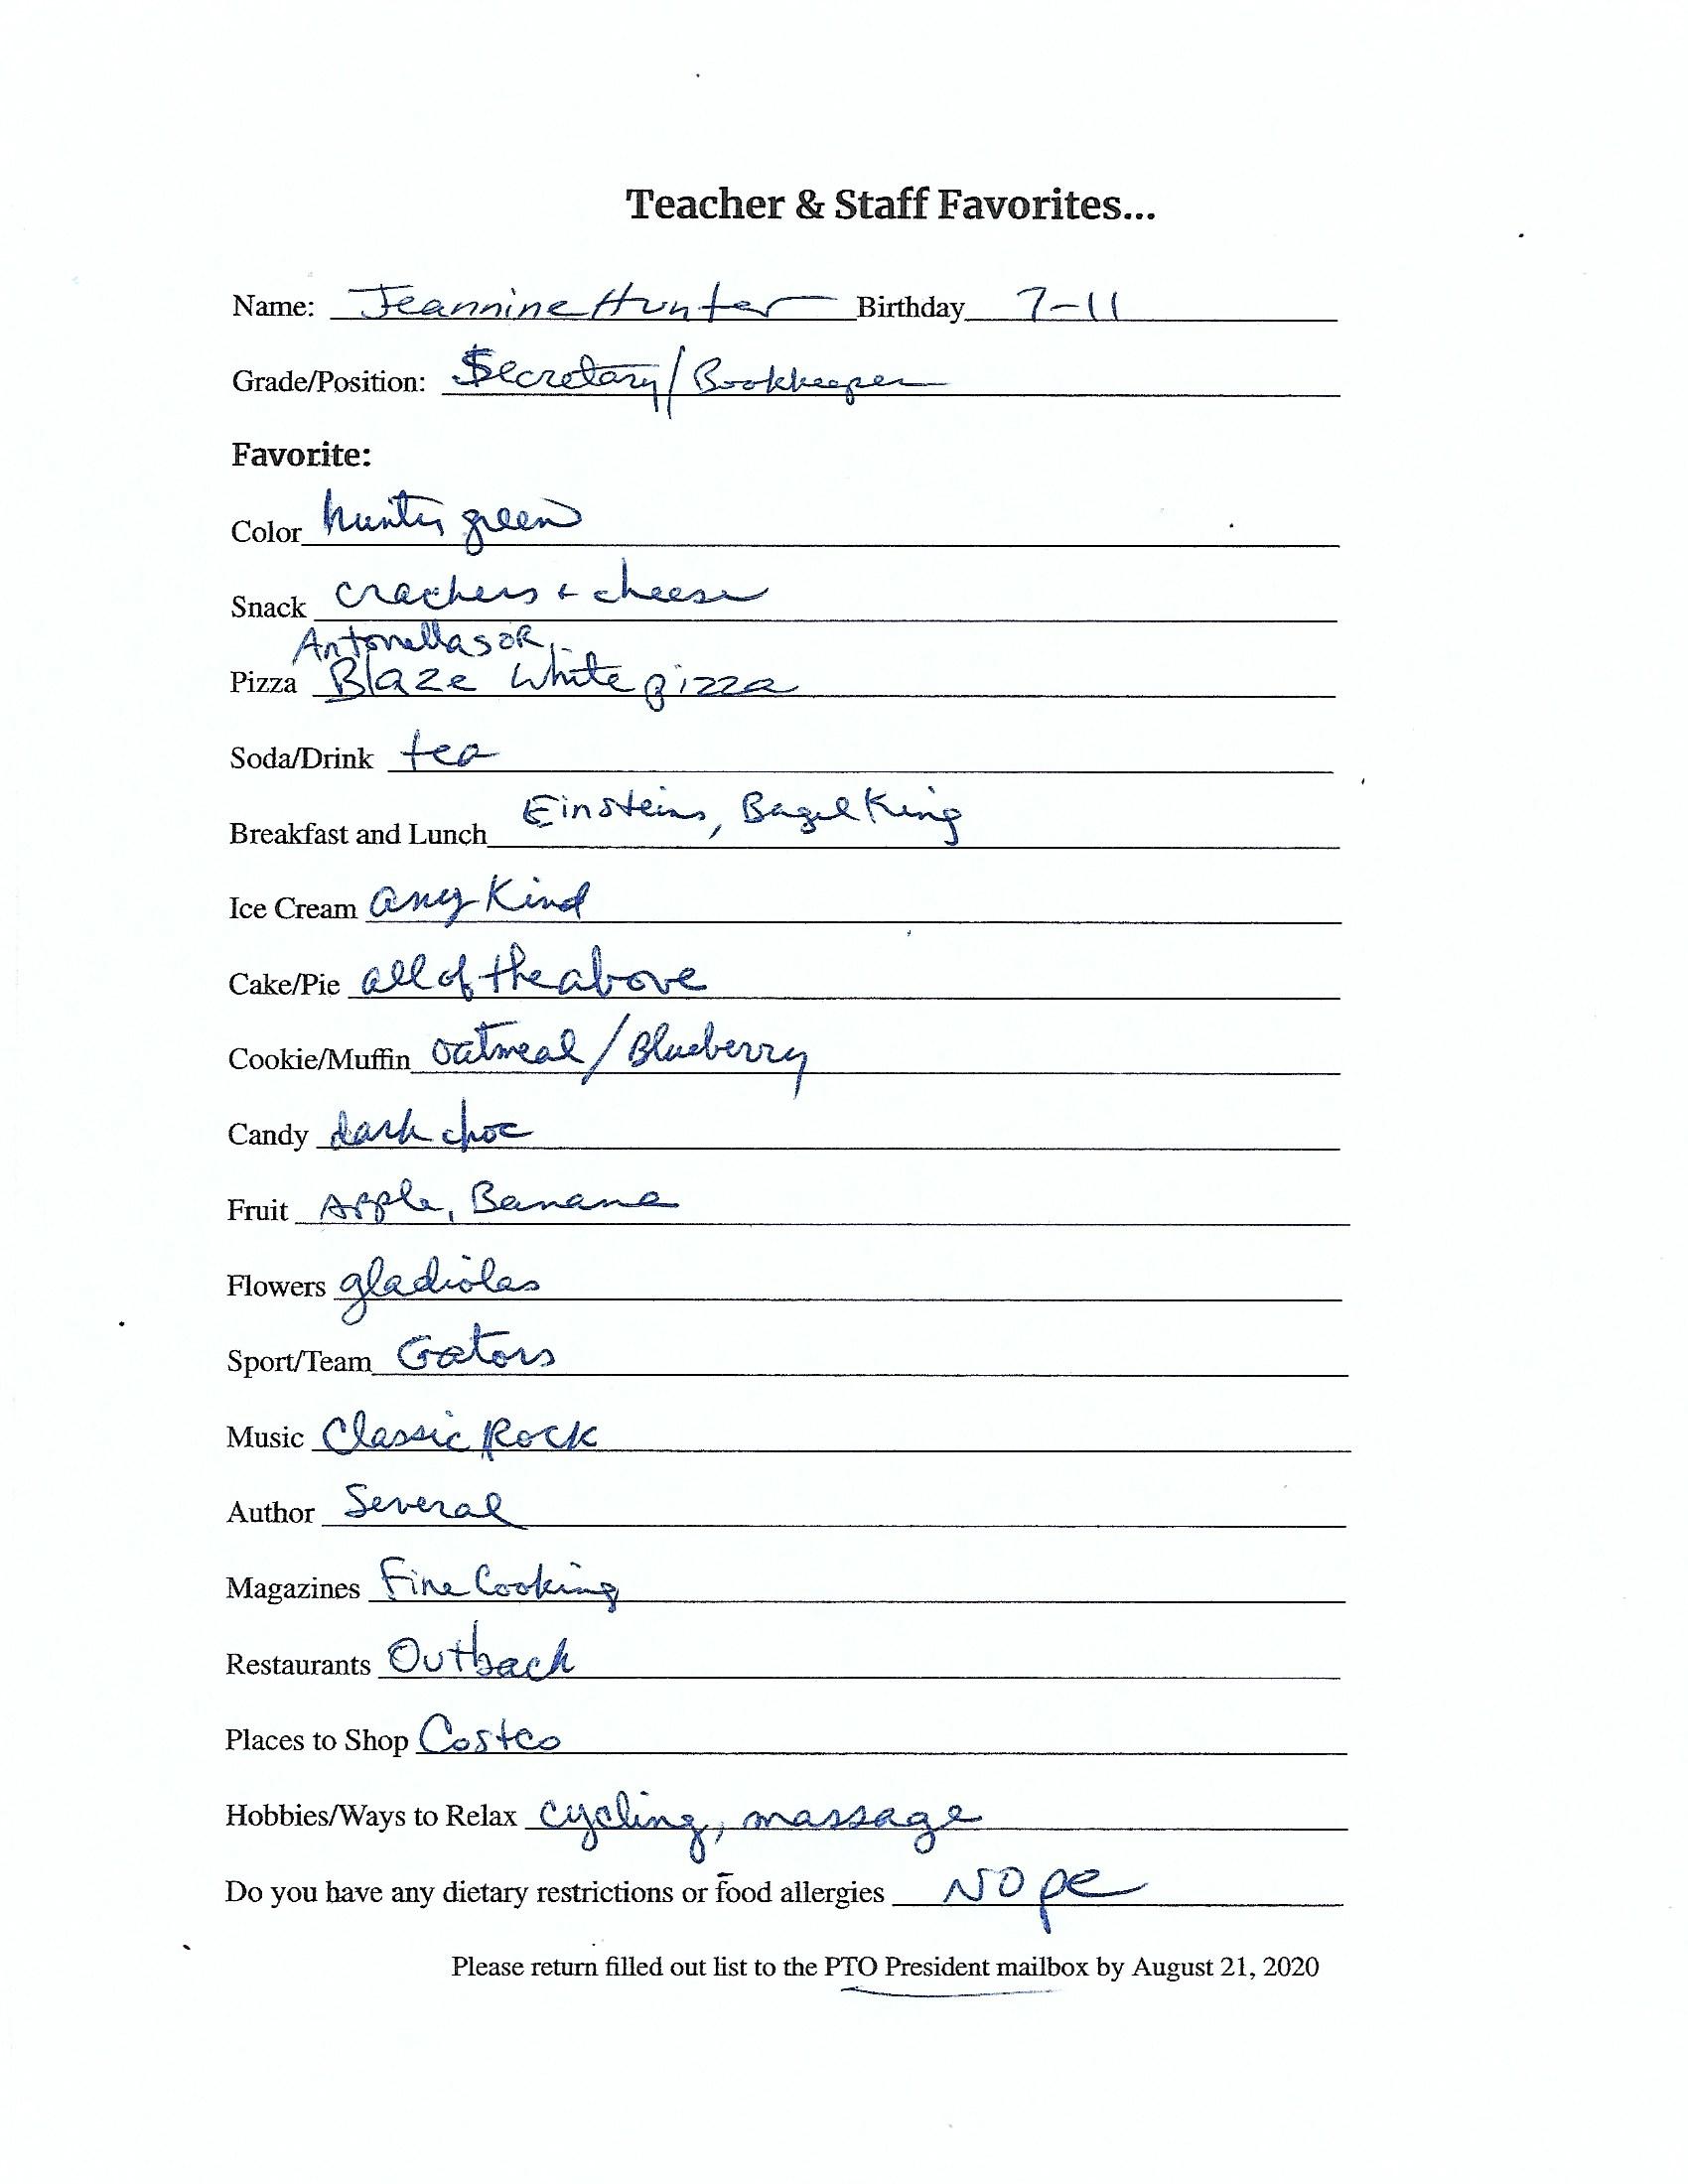 Teacher & Staff Favorites...
Name: Jeannine Hunter Birthday 7-11
Grade/Position: Secretary/Bookkeeper
Favorite:
Color hunter green
Snack crackers + cheese
Antonellas OR
Pizza Blaze white pizza
Soda/Drink tea
Breakfast and Lunch Einsteins, Bagel King
Ice Cream any Kind
Cake/Pie all of the above
Cookie/Muffin oatmeal/Blueberry
Candy dark choc
Fruit Apple, Banana
Flowers gladiolas
Sport/Team Gators
Music Classic Rock
Author Several
Magazines Fine Cooking
Restaurants Outback
Places to Shop Costco
Hobbies/Ways to Relax cycling, massage
Do you have any dietary restrictions or food allergies Nope
Please return filled out list to the PTO President mailbox by August 21, 2020